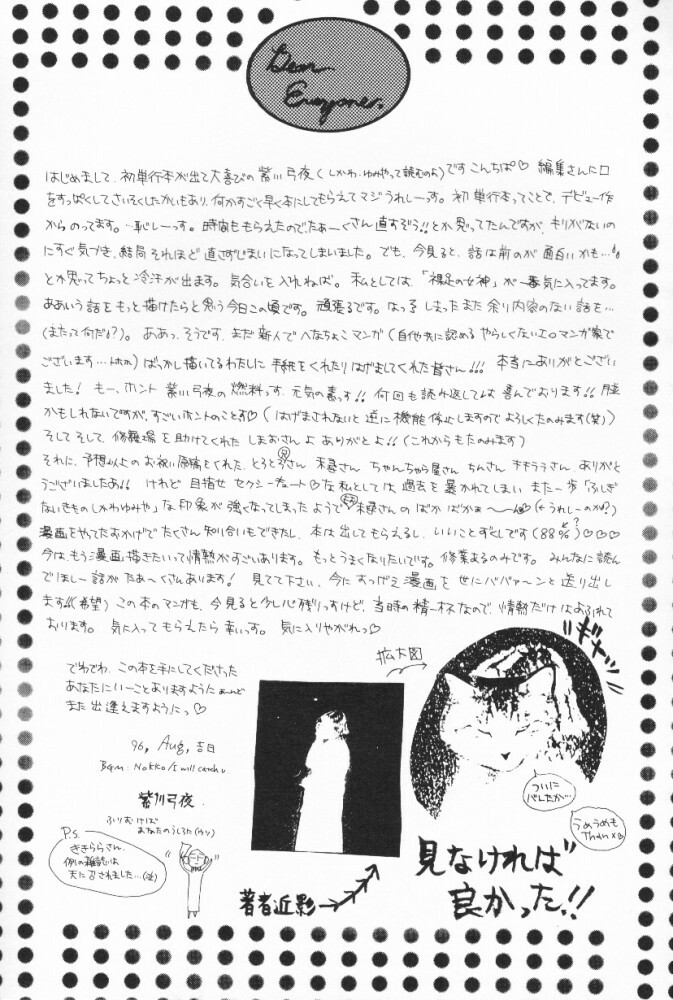 Dear
Everyone.
はじめまして、初単行本が出て大喜びの紫川弓夜(しかわゆみやって読むのよ)ですこんちぱ♡ 編集さんに口
をすっぱくしてさいそくしたかいもあり、何かすごく早く本にしてもらえてマジうれしーっす。初単行本ってことで、デビュー作
からのってます。恥しーっす。時間ももらえたのでたぁ〜くさん直すぞう!!とか思ってたんですが、キリがないの
にすぐ気づき、結局それほど直さずじまいになってしまいました。でも、今見ると、話は前のが面白いかも…
とか思ってちょっと冷汗が出ます。気合いを入れねば。私としては、「裸足の女神」が一番気に入ってます。
ああいう話をもっと描けたらと思う今日この頃です。頑張るです。はっ しまったまた余り内容のない話を…
(またって何だ?)。ああっ、そうです、まだ新人でへなちょこマンガ(自他共に認めるやらしくないエロマンガ家で
ございます…トホホ)ばっかし描いてるわたしに手紙をくれたりはげましてくれた皆さん!!! 本当にありがとござい
ました! もー、ホント 紫川弓夜の燃料っす、元気の素っす!! 何回も読み返しては喜んでおります!!
かもしれないですが、すごいホントのことす♡(はげまされないと逆に機能停止しますのでよろしくたのみます(笑))
そしてそして、修羅場を助けてくれたしまおさんよありがとよ!!(これからもたのみます)
それに、予想以上のお祝い原稿をくれた、とろろさん 未尋さん ちゃんちゃら屋さん ちんさん キキララさん、ありがと
うございましたあ!! けれど目指せセクシーキュート♡な私としては過去を暴かれてしまい また一歩「ふしぎ
ないきものしかわゆみや」な印象が強くなってしまったようで 未尋さんのばかばかぁ〜ん(←うれしーのか?)
漫画をやってたおかげでたくさん知り合いもできたし、本は出してもらえるし、いいことずくしです(88%)♡♡♡
?
今は、もう漫画描きたいって情熱がすごいあります。もっとうまくなりたいです。修業あるのみです。みんなに読ん
でほしー話がたぁ〜くさんあります! 見てて下さい、今にすっげえ漫画を世にババァーンと送り出し
ます!!(希望) この本のマンガも、今見ると少し心残りっすけど、当時の精一杯なので、情熱だけはあふれて
おります。気に入ってもらえたら幸いっす。気に入りやがれっ♡
でわでわ、この本を手にしてくださった
あなたにいーことありますように
また出逢えますようにっ♡
96, Aug, 吉日
BGM: NOKKO/I will catch u
紫川弓夜
ふりむけば
あなたのうしろに(ウソ)
P.S.
ききららさん、
例の雑誌は
天に召されました…(泣)
著者近影
拡大図
ギャッ
ついに
バレたか…
うめうめも
Thanx
見なければ
良かった!!